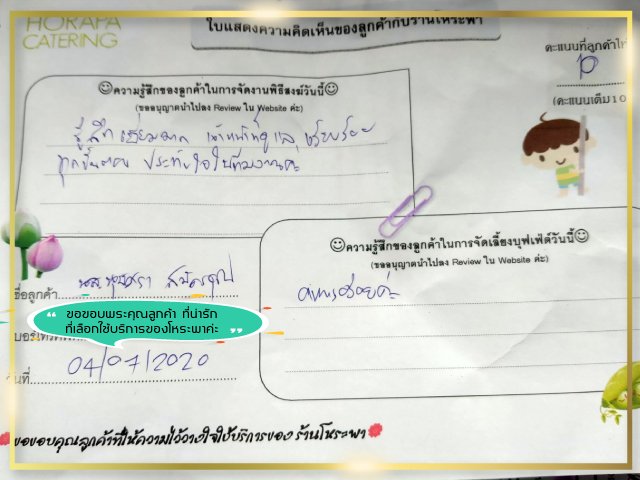 HORAPA
CATERING
ใบแสดงความคิดเห็นของลูกค้ากับร้านโหระพา
คะแนนที่ลูกค้าให้
10
(คะแนนเต็ม10
ความรู้สึกของลูกค้าในการจัดงานพิธีสงฆ์วันนี้
(ขออนุญาตนำไปลง Review ใน Website ค่ะ)
รู้สึกเยี่ยมมาก เจ้าหน้าที่ดูแล เรียบร้อย
ทุกขั้นตอน ประทับใจในทีมงานคะ
ความรู้สึกของลูกค้าในการจัดเลี้ยงบุฟเฟ่ต์วันนี้
(ขออนุญาตนำไปลง Review ใน Website ค่ะ)
อาหารอร่อยค่ะ
ชื่อลูกค้า
“ ขอขอบพระคุณลูกค้า ที่น่ารัก
ที่เลือกใช้บริการของโหระพาค่ะ ”
วันที่ 04/07/2020
ขอขอบคุณลูกค้าที่ให้ความไว้วางใจใช้บริการของ ร้านโหระพา